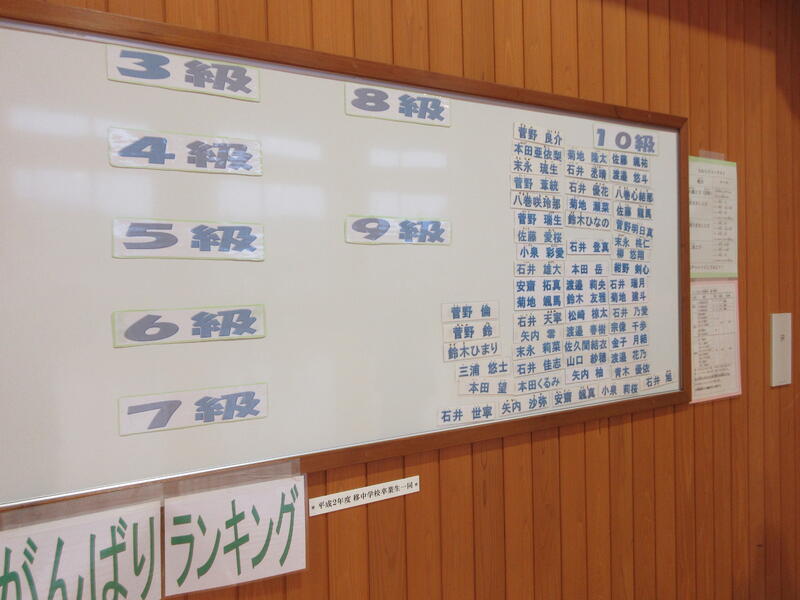 3級
4級
5級
6級
7級
8級
9級
10級
菅野 良介
本田亜依梨 菊地 隆太 佐藤 颯祐
末永 琉生 石井 丞晴 渡邉 悠斗
菅野 葦統 石井 優花 八巻心結那
八巻咲玲那 菊地 瀬菜 佐藤 龍馬
菅野 瑞生 鈴木ひなの 菅野明日真
佐藤 愛桜 石井 登真 末永 桃仁
小泉 彩愛 柳 悠翔
石井 雄大 本田 岳 紺野 剣心
安齋 拓真 渡邉 莉央 石井 瑞月
菊地 颯馬 鈴木 友雅 菊地 遼斗
菅野 倫 石井 天寧 松崎 椋太 石井 乃愛
菅野 鈴 矢内 零 渡邉 春樹 宗像 千歩
鈴木ひまり 末永 莉菜 佐久間結衣 金子 月結
三浦 悠士 石井 佳志 山口 紗穂 渡邉 花乃
本田 望 本田くるみ 矢内 柚 青木 優依
石井 世寧 矢内 沙弥 安齋 颯真 小泉 莉桜 石井 旭
がんばり ランキング
* 平成2年度 移中学校卒業生一同 *